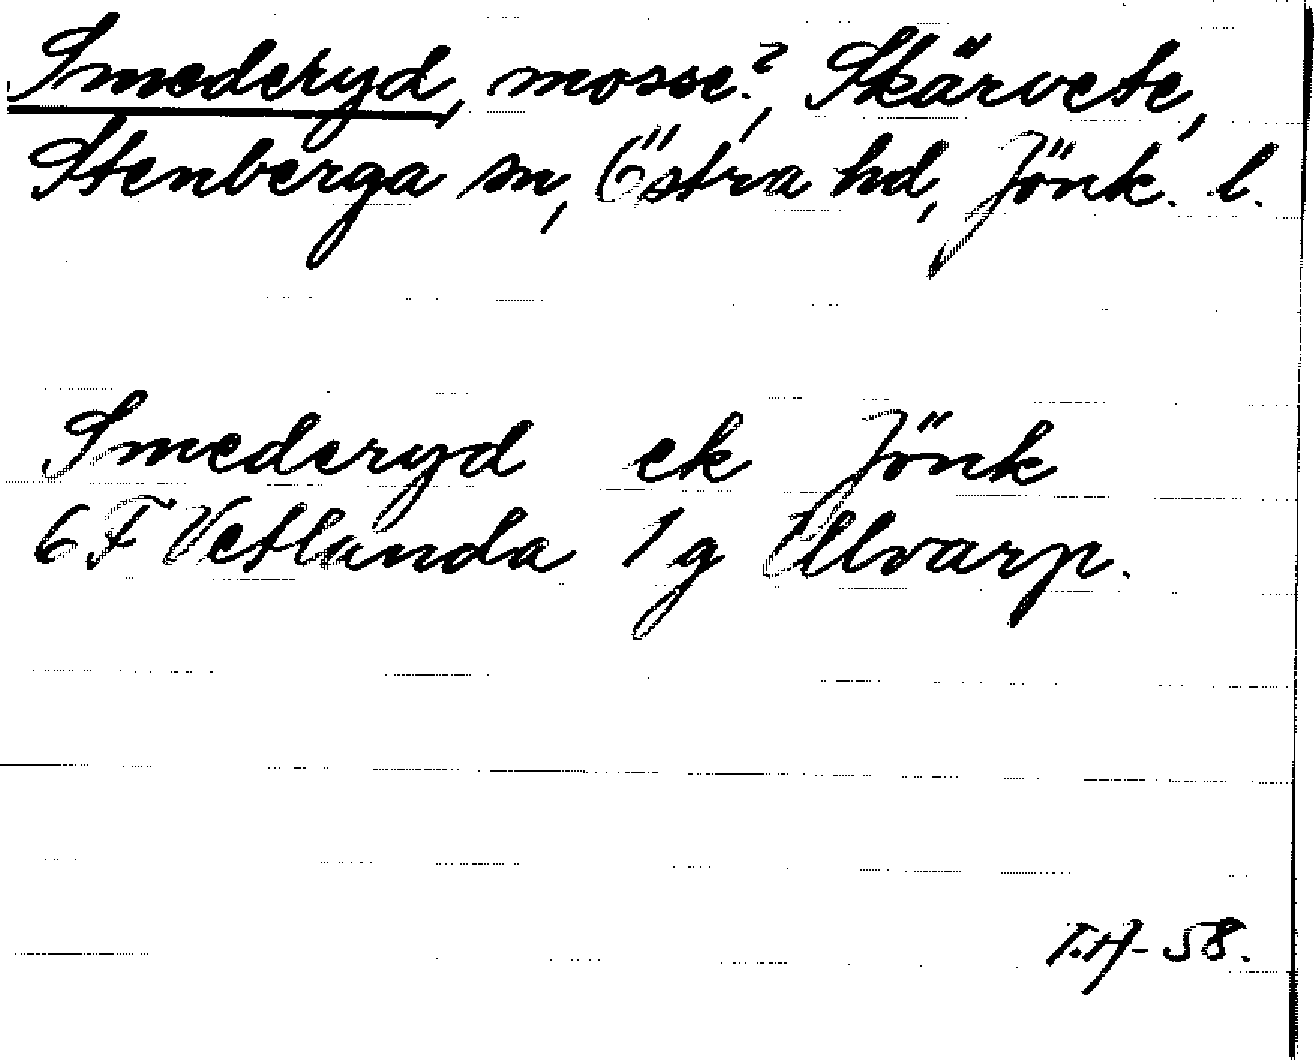 Smederyd, mosse?, Skärvete,
Stenberga sn, Östra hd, Jönk. l.
Smederyd ek Jönk
6 F Vetlunda 1 g Ulvarp.
T.H-58.